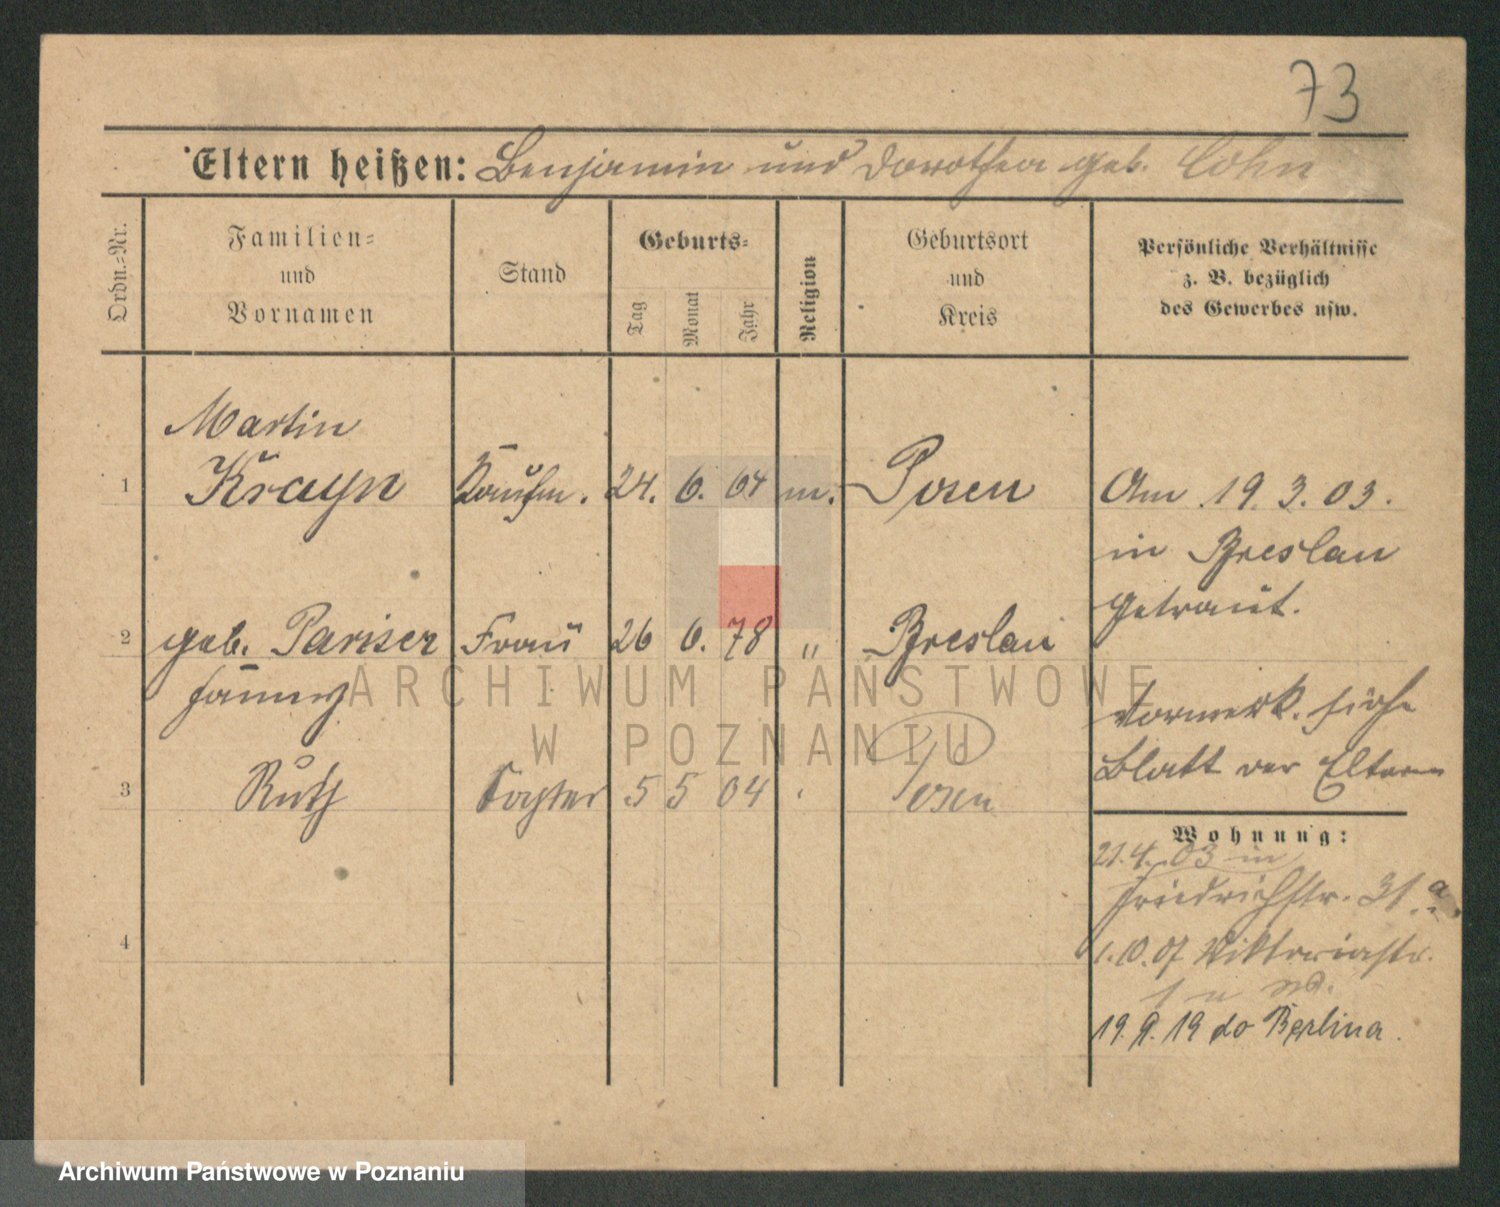 73
Eltern heißen: Benjamin und Dorothea geb. Cohn
Ordn.-Nr.
Familien-
und
Vornamen
Stand
Geburts-
Tag
Monat
Jahr
Religion
Geburtsort
und
Kreis
Persönliche Verhältnisse
z. B. bezüglich
des Gewerbes usw.
Martin
1 Krayn Kaufm. 24. 6. 64 m. Posen
Am 19. 3. 03.
in Breslau
getraut.
2 geb. Pariser Frau 26 6. 78 " Breslau
Fanny
Vormerk. siehe
Blatt der Eltern
3 Ruth Tochter 5 5 04 Posen
Wohnung:
21. 4. 03 in
Friedrichstr. 31 a.
4
1. 10. 07 Viktoriastr.
19. 9. 19 do Berlina.
ARCHIWUM PAŃSTWOWE
W POZNANIU
Archiwum Państwowe w Poznaniu